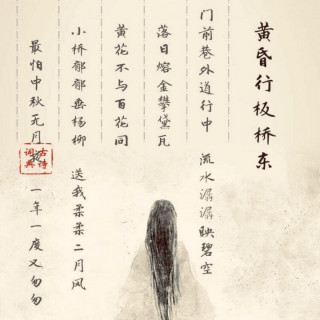 黄昏行板桥东
门前巷外道行中 流水潺潺映碧空
落日熔金攀黛瓦
黄花不与百花同
小桥郁郁垂杨柳 送我柔柔二月风
最怕中秋无月夜 一年一度又匆匆
古诗词典